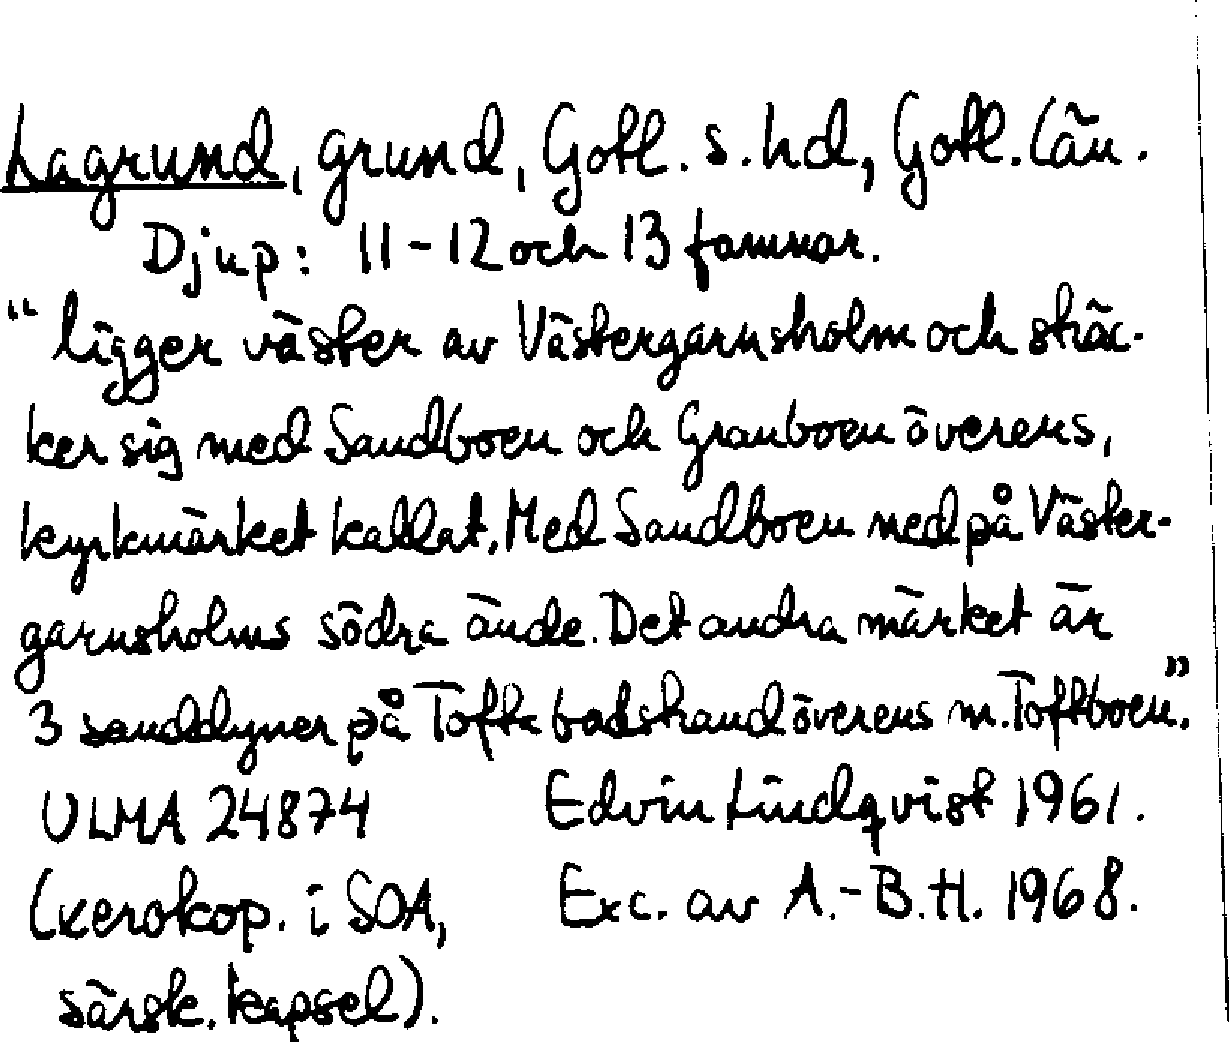 Lagrund, grund, Gotl. s. hd, Gotl. län.
Djup: 11-12 och 13 famnar.
"ligger väster av Västergarnsholm och sträc-
ker sig med Sandboen och Granboen överens,
kyrkmärket kallat. Med Sandboen ned på Väster-
garnsholms södra ände. Det andra märket är
3 sanddyner på Tofta badstrand överens m. Toftboen".
ULMA 24874 Edvin Lindqvist 1961.
(xerokop. i SOA, Exc. av A.-B.H. 1968.
särsk. kapsel).